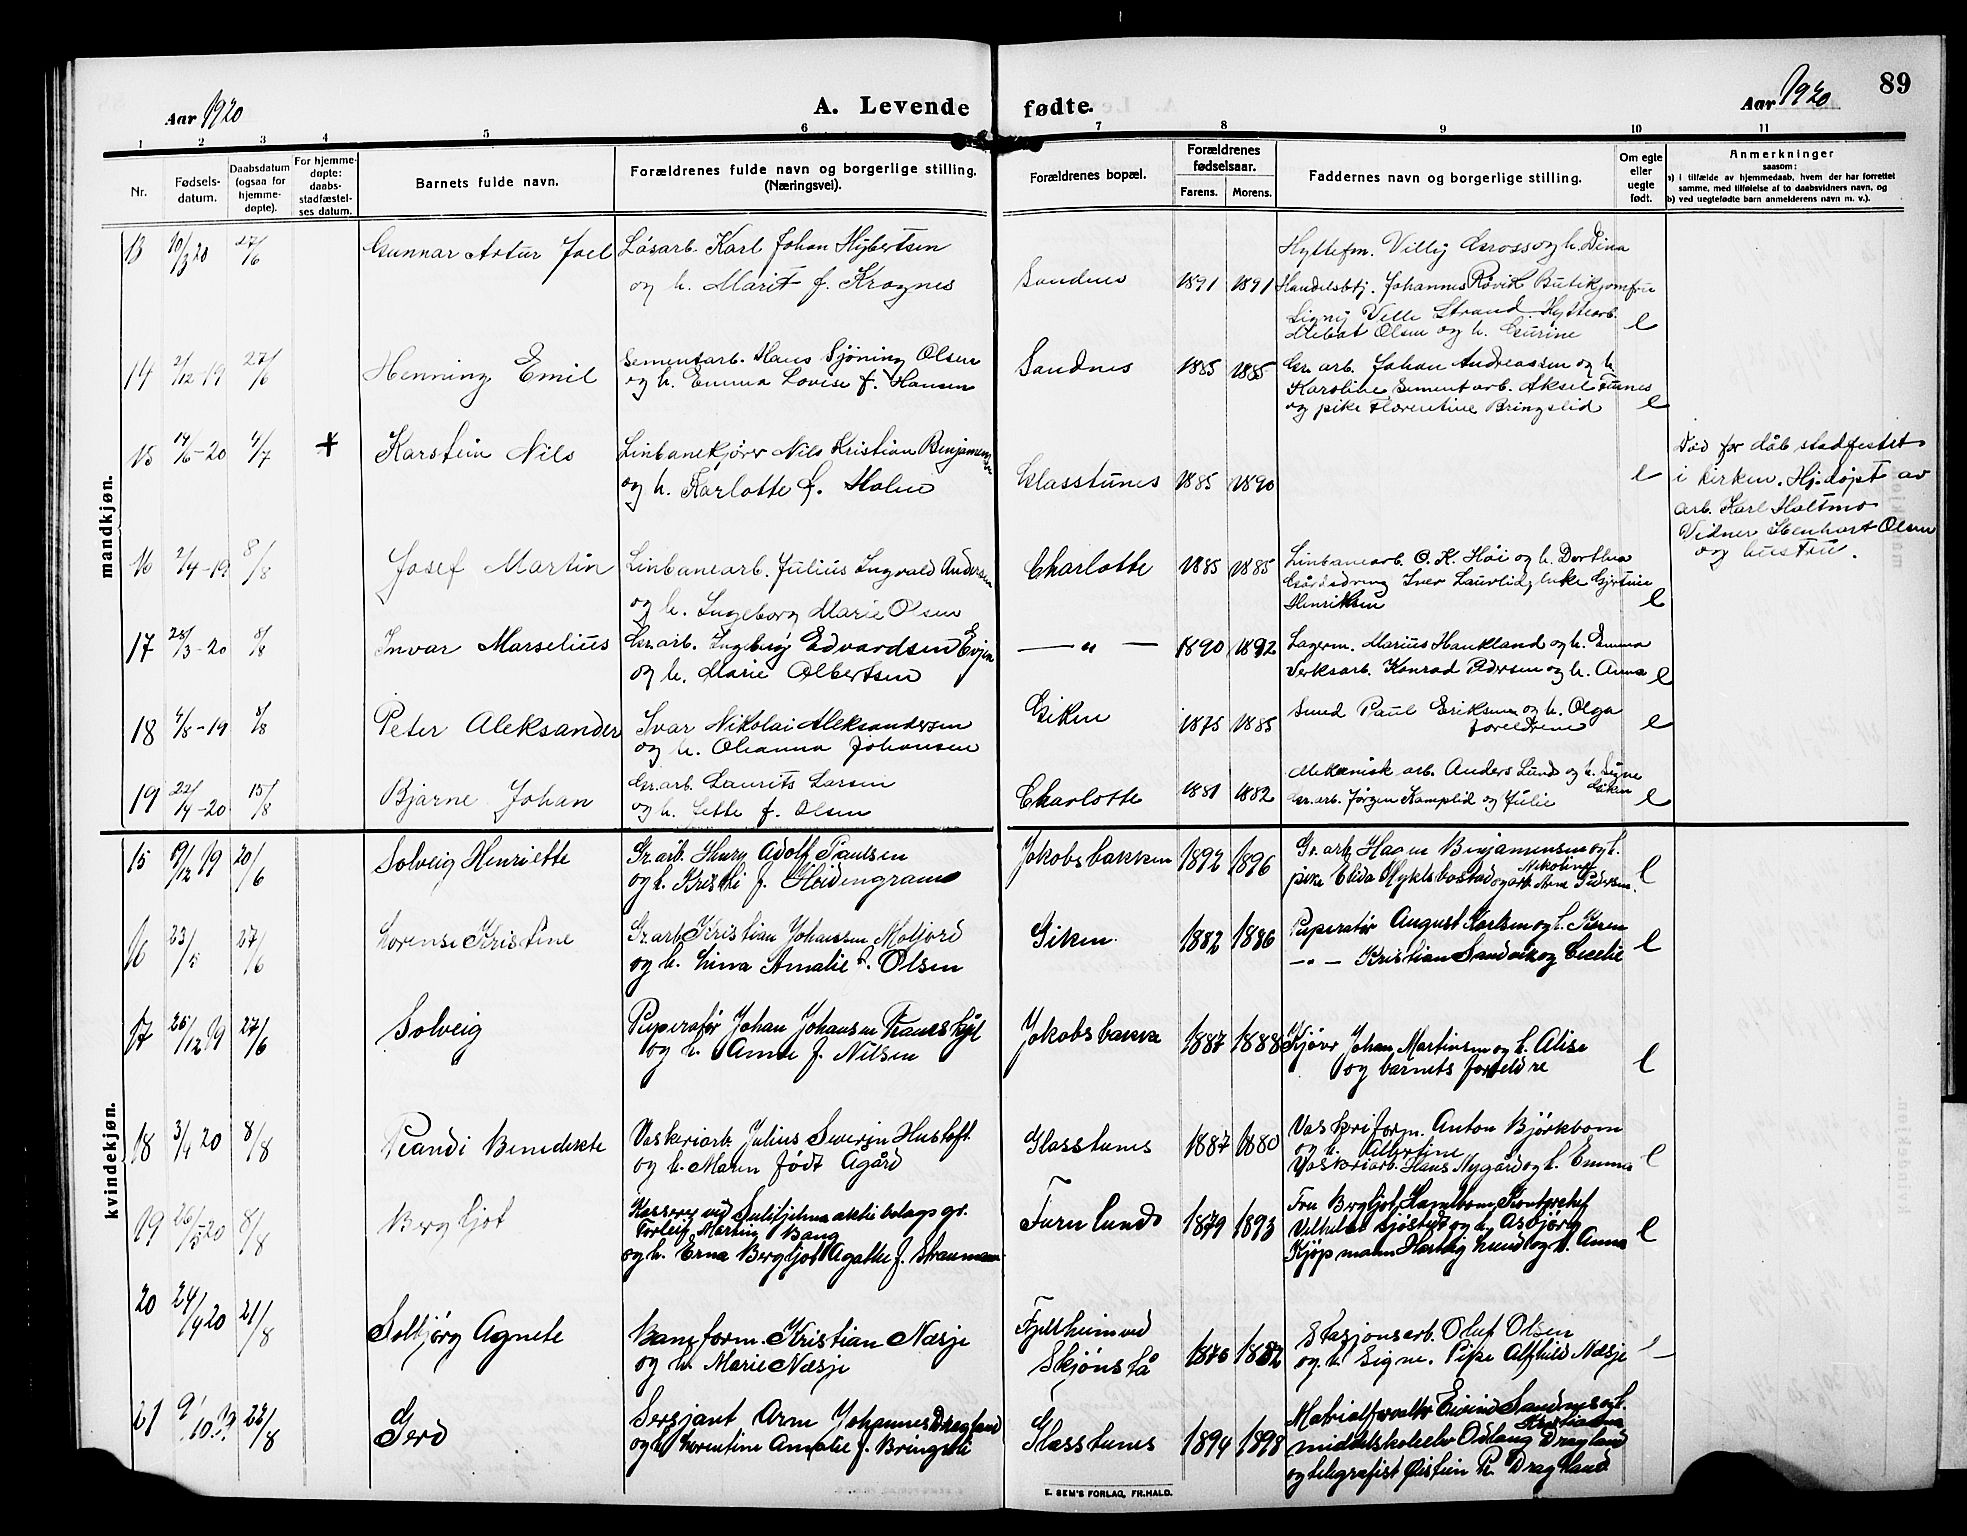 Aar 1920
A. Levende fødte.
Aar 1920
89
1 2 3 4 5 6 7 8 9 10 11
Nr.
Fødsels-
datum.
Daabsdatum
(ogsaa for
hjemme-
døpte).
For hjemme-
døpte:
daabs-
stadfæstel-
ses datum.
Barnets fulde navn.
Forældrenes fulde navn og borgerlige stilling.
(Næringsvei).
Forældrenes bopæl.
Forældrenes
fødselsaar.
Farens. Morens.
Faddernes navn og borgerlige stilling.
Om egte
eller
uegte
født.
Anmerkninger
saasom:
a) i tilfælde av hjemmedaab, hvem der har forrettet
samme, med tilføielse af to daabsvidners navn, og
b) ved uegtefødte barn anmelderens navn m. v.).
mandkjøn.
13 10/3 20 27/6 Gunnar Artur Joel
Løsarb. Karl Johan Hybertsen
og h. Marit f. Kragnes
Sandnes 1891 1891
Hyttefm. Villy Gross og h. Dina
Handelsbtj. Johannes Røvik Butikjomfru
Signy Velle Strand. Hyttearb.
Olsen og h. Gurine e
14 2/12-19 27/6 Henning Emil
Sementarb. Hans Sjøning Olsen
og h. Emma Lovise f. Hansen
Sandnes 1885 1885
Gr. arb. Johan Andreassen og h.
Karoline Sementarb. Aksel Furnes
og pike Florentine Bringslid e
15 14/6-20 4/7 + Karstein Nils
Linbanekjører Nils Kristian Benjaminsen
og h. Karlotte f. Holm
Glasstunes 1885 1890 e
Død før dåb stadfestet
i kirken. Hj.døpt av
arb. Karl Holtmo
Vidner Olsen
og hustru.
16 2/4-19 8/8 Josef Martin
Linbanearb. Julius Ingvald Andersen
og h. Ingeborg Marie Olsen
Charlotte 1885 1885
Linbanearb. O. K. Høi og h. Dorthea
Gårdsdreng Iver Laurlid, enke Gjertine
Henriksen e
17 28/3-20 8/8 Invar Marselius
Gr. arb. Ingebrig Edvardsen Evjen
og h. Marie Albertsen
— „ — 1890 1892
Lagerm. Marius Haukland og h. Emma
Verksarb. Konrad Pedersen og h. Anna e
18 4/8-19 8/8 Peter Aleksander
Ivar Nikolai Aleksandersen
og h. Olianna Johansen
Giken 1875 1885
Smed Paul Eriksen og h. Olga
foreldrene e
19 22/4-20 15/8 Bjarne Johan
Gr. arb. Laurits Larsen
og h. Jette f. Olsen
Charlotte 1881 1882
Mekanisk arb. Anders Lund og h. Signe
Giken
Gr. arb. Jørgen Kamplid og Julie e
kvindekjøn.
15 19/12 19 20/6 Solveig Henriette
Gr. arb. Henry Adolf Paulsen
og h. Kristi f. Heidengram
Jakobsbakken 1892 1896
Gr. arb. Hagen Benjaminsen og h.
Nikoline
pike Elida Myklebostad og arb. Arne Pedersen. e
16 23/5 27/6 Lorense Kristine
Gr. arb Kristian Johansen Mofjord
og h. Lina Amalie f. Olsen
Giken 1882 1886
Peperatør August Karlsen og h. Karen
— „ — Kristian Sandvik og Cecelie e
17 25/12 19 27/6 Solveig
Peperatør Johan Johansen
og h. Anna f. Nilsen
Jakobsbakke 1887 1888
Kjører Johan Martinsen og h. Alise
og barnets foreldre e
18 3/4 20 8/8 Randi Benedekte
Vaskeriarb. Julius Sverin Hustoft
og h. Maren født Ågård
Glasstunes 1887 1880
Vaskeriform. Anton Bjørkbom
og h. Albertine
Vaskeriarb. Hans Nygård og h. Emma e
19 26/5 20 8/8 Bergljot
Kasserer ved Sulitjelma aktiebolags gr.
Torleif Martin Bang
og h. Erna Bergljot Agathe f. Straumann
Furulund 1879 1893
Fru Bergljot Kontorchef
Vilhelm Sjøsted og h. Asbjørg
Kjøpmann Hartvig Lund og h. Anna e
20 24/4 20 21/8 Solbjørg Agnete
Baneform. Kristian Næsje
og h. Marie Næsje
Fjellheim ved
Skjønstå 1876 1882
Stasjonsarb. Oluf Olsen
og h. Signe. Pike Alfhild Næsje
21 9/10 19 22/8 Gerd
Sersjant Arne Johannes Dragland
og h. Lorentine Amalie f. Bringsli
Glasstunes 1894 1898
Matrialforvalter Eivind Sandnes og h.
Kristianna
middelskoleelev Odlaug Dragland
og telegrafist Øistein R. Dragland
E. SEM'S FORLAG, FR.HALD.